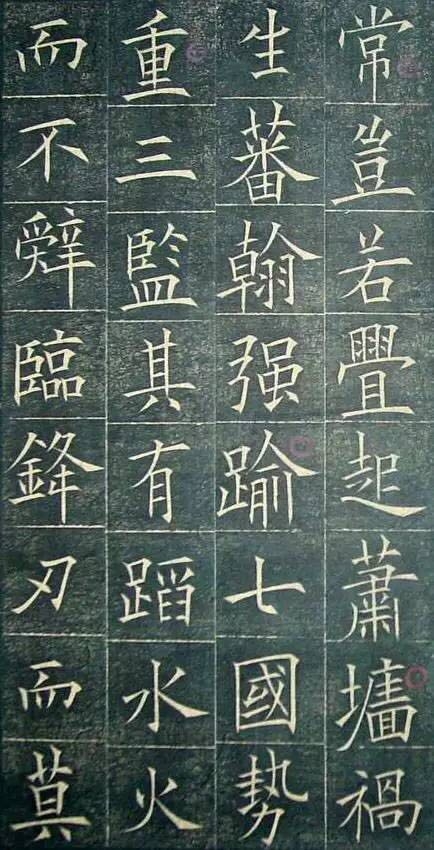 常豈若疊起蕭墻禍
生蕃翰强踰七國勢
重三監其有蹈水火
而不辤臨鋒刃而莫